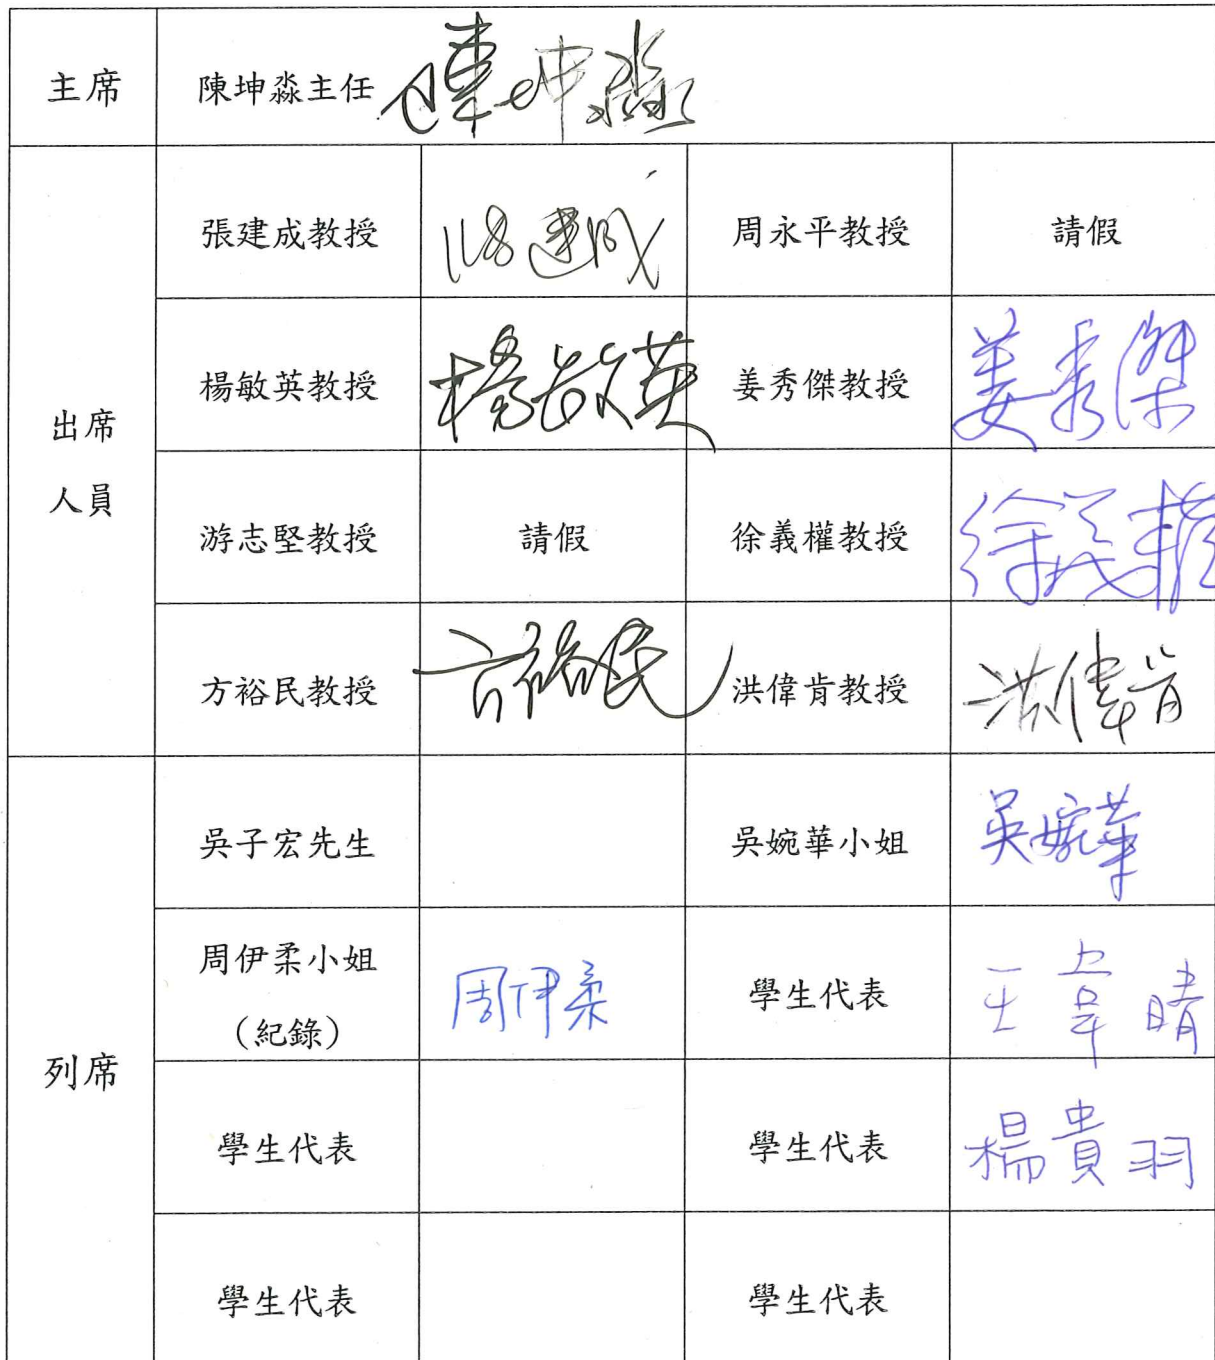 主席 陳坤淼主任 陳坤淼
張建成教授 張建成 周永平教授 請假
楊敏英教授 楊敏英 姜秀傑教授 姜秀傑
出席
人員
游志堅教授 請假 徐義權教授 徐義權
方裕民教授 方裕民 洪偉肯教授 洪偉肯
吳子宏先生 吳婉華小姐 吳婉華
周伊柔小姐
(紀錄) 周伊柔 學生代表 王韋晴
列席
學生代表 學生代表 楊貴羽
學生代表 學生代表